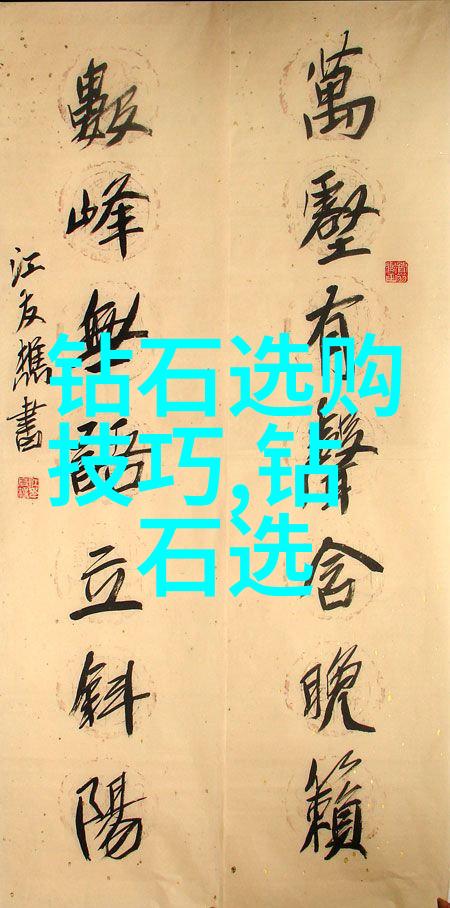 萬壑有聲含晚籟
數峰無語立斜陽
江友樵書
钻石选购
技巧,钻
石选